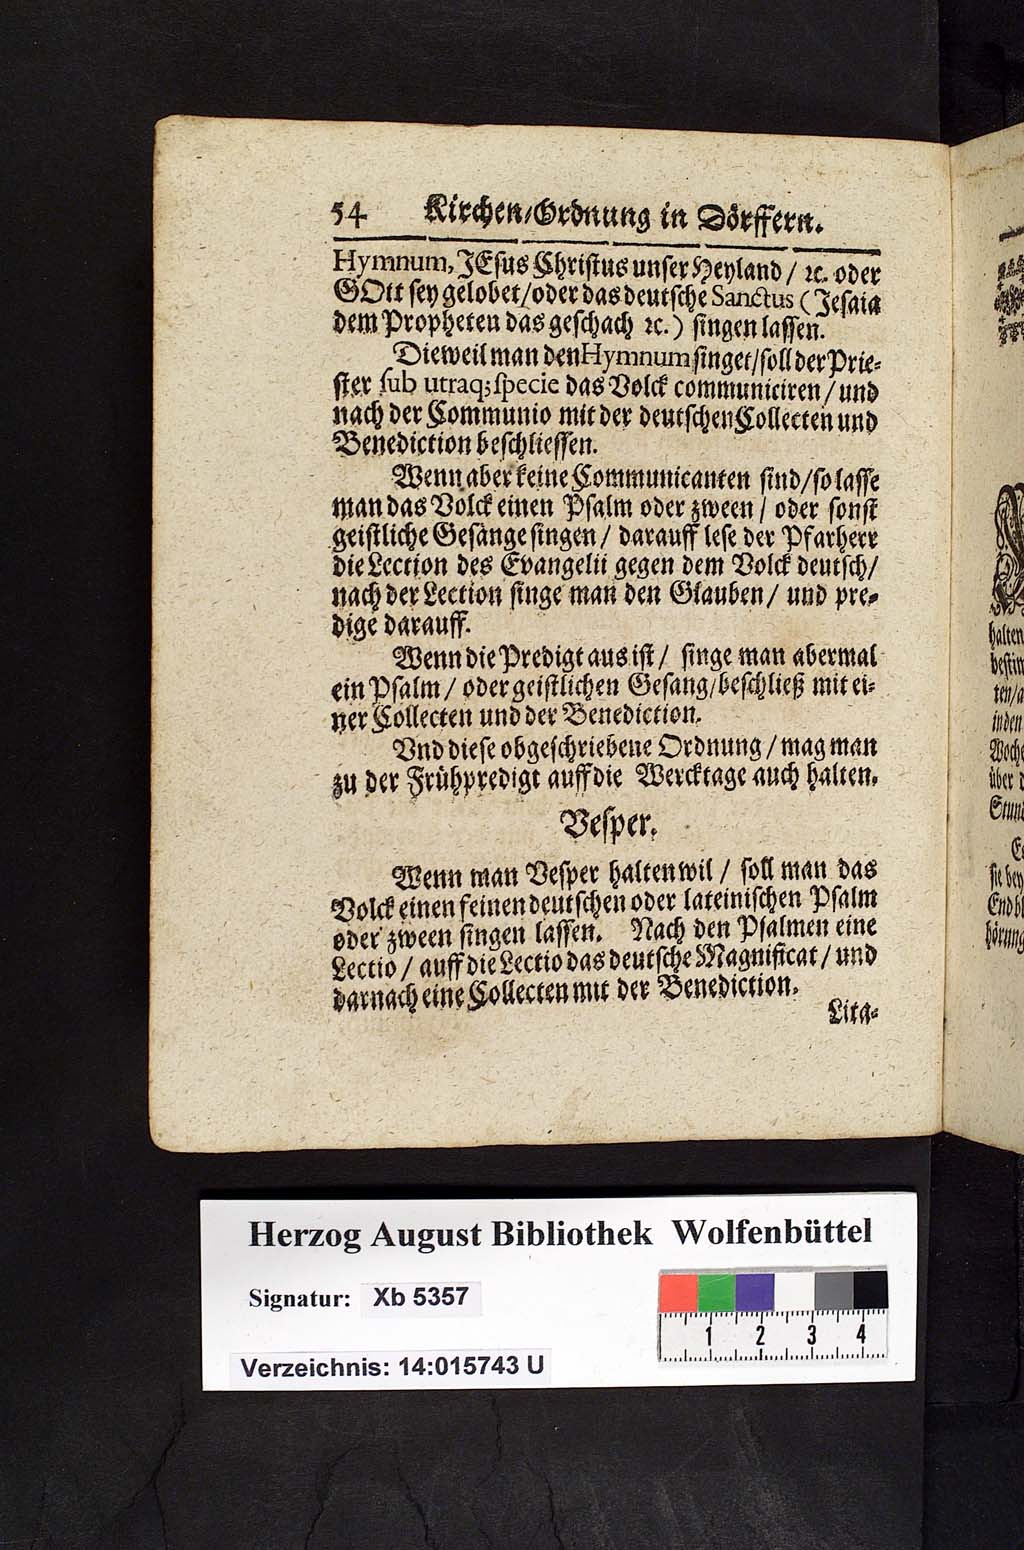 54 Kirchen/Ordnung in Dörffern.
Hymnum, JEsus Christus unser Heyland / ꝛc. oder
GOtt sey gelobet/oder das deutsche Sanctus (Jesaia
dem Propheten das geschach ꝛc.) singen lassen.
Dieweil man den Hymnum singet/soll der Prie-
ster sub utraq; specie das Volck communiciren / und
nach der Communio mit der deutschen Collecten und
Benediction beschliessen.
Wenn aber keine Communicanten sind/so lasse
man das Volck einen Psalm oder zween / oder sonst
geistliche Gesänge singen / darauff lese der Pfarherr
die Lection des Evangelii gegen dem Volck deutsch/
nach der Lection singe man den Glauben / und pre-
dige darauff.
Wenn die Predigt aus ist / singe man abermal
ein Psalm / oder geistlichen Gesang/beschließ mit ei-
ner Collecten und der Benediction.
Vnd diese obgeschriebene Ordnung / mag man
zu der Frühpredigt auff die Wercktage auch halten.
Vesper.
Wenn man Vesper halten wil / soll man das
Volck einen feinen deutschen oder lateinischen Psalm
oder zween singen lassen. Nach den Psalmen eine
Lectio / auff die Lectio das deutsche Magnificat / und
darnach eine Collecten mit der Benediction.
Lita-
halten
bestim
ten/a
in den
Woche
über d
Stund
sie bey
End bl
hörung
Herzog August Bibliothek Wolfenbüttel
Signatur: Xb 5357
Verzeichnis: 14:015743 U
1 2 3 4